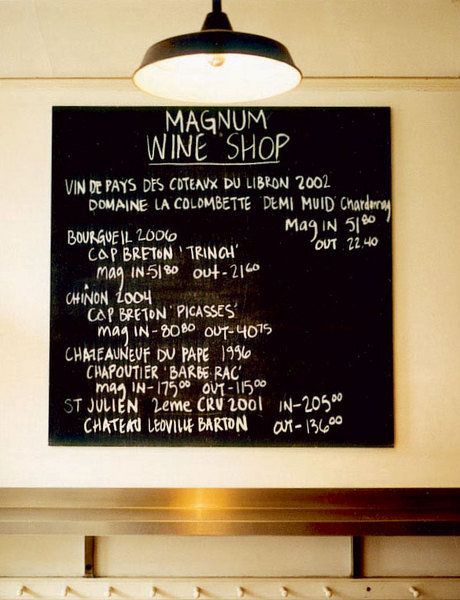 MAGNUM
WINE SHOP
VIN DE PAYS DES COTEAUX DU LIBRON 2002
DOMAINE LA COLOMBETTE 'DEMI MUID' Chardonnay
Mag IN 5180
OUT 22.40
BOURGUEIL 2006
CAP BRETON 'TRINCH'
mag IN 5180 OUT-2160
CHINON 2004
CAP BRETON 'PICASSES'
mag IN-8080 OUT-4075
CHATEAUNEUF DU PAPE 1996
CHAPOUTIER 'BARBE RAC'
mag IN-17500 OUT-11500
ST JULIEN 2eme CRU 2001 IN-20500
CHATEAU LEOVILLE BARTON OUT-13600